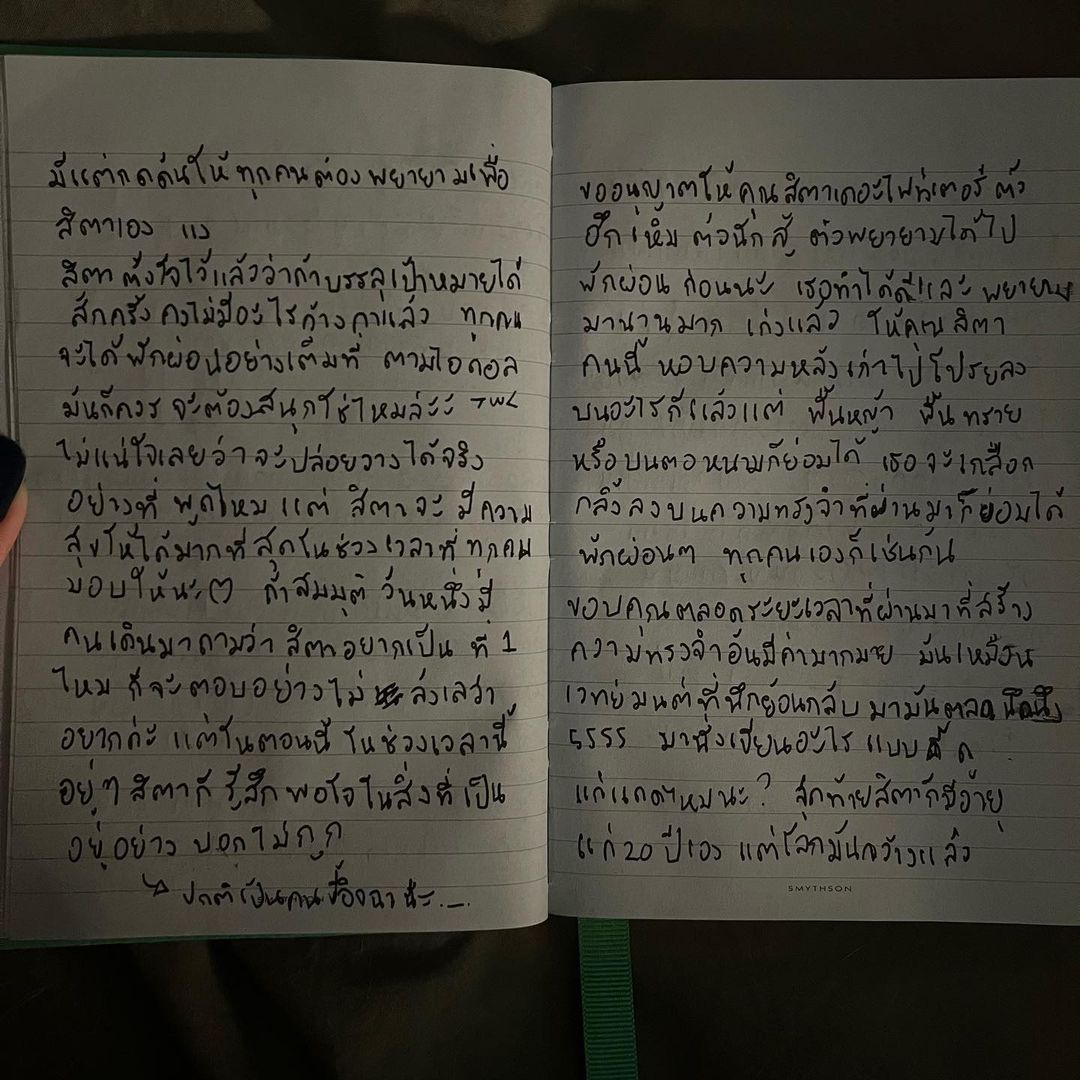 มีแต่กดดันให้ทุกคนต้องพยายามเพื่อ
สิตาเอง แง
สิตาตั้งใจไว้แล้วว่าถ้าบรรลุเป้าหมายได้
สักครั้งคงไม่มีอะไรค้างคาแล้ว ทุกคน
จะได้พักผ่อนอย่างเต็มที่ ตามไอดอล
มันก็ควรจะต้องสนุกใช่ไหมล่ะะ
ไม่แน่ใจเลยว่าจะปล่อยวางได้จริง
อย่างที่พูดไหม แต่ สิตาจะมีความ
สุขให้ได้มากที่สุดในช่วงเวลาที่ทุกคน
มอบให้นะ ถ้าสมมุติ วันหนึ่งมี
คนเดินมาถามว่า สิตาอยากเป็น ที่ 1
ไหม ก็จะตอบอย่างไม่ ลังเลว่า
อยากค่ะ แต่ในตอนนี้ ในช่วงเวลานี้
อยู่ๆ สิตาก็รู้สึกพอใจในสิ่งที่เป็น
อยู่อย่างบอกไม่ถูก
ปกติเป็นคนขี้อิจฉาน่ะ ._.
ขออนุญาตให้คุณสิตาเดอะไฟท์เตอร์ ตัว
ฮึกเหิ้ม ตัวนักสู้ ตัวพยายามได้ไป
พักผ่อนก่อนนะ เธอทำได้ดีและพยายาม
มานานมาก เก่งแล้ว ให้คุณสิตา
คนนี้ หอบความหลังเก่าไปโปรยลง
บนอะไรก็แล้วแต่ พื้นหญ้า พื้นทราย
หรือบนตอหนามก็ย่อมได้ เธอจะเกลือก
กลิ้งลงบนความทรงจำที่ผ่านมาก็ย่อมได้
พักผ่อนๆ ทุกคนเองก็เช่นกัน
ขอบคุณตลอดระยะเวลาที่ผ่านมาที่สร้าง
ความทรงจำอันมีค่ามากมาย มันเหมือน
เวทย์มนต์ที่นึกย้อนกลับมามันตลอด
5555 มานั่งเขียนอะไรแบบนี้ ดู
แก่แดดไหมนะ? สุดท้ายสิตาก็มีอายุ
แค่ 20 ปีเอง แต่โลกมันกว้างแล้ว
SMYTHSON